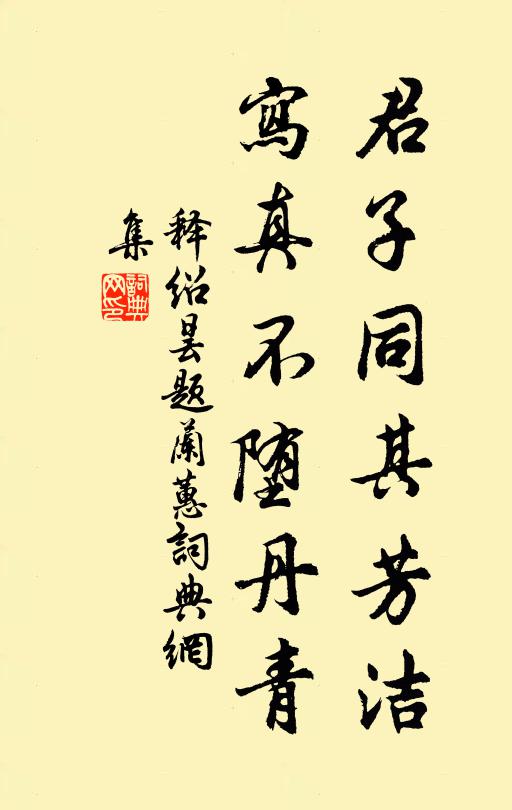 君子同其芳洁
寫真不堕丹青
释绍昙题蘭蕙詞典網
集
詞典
网印